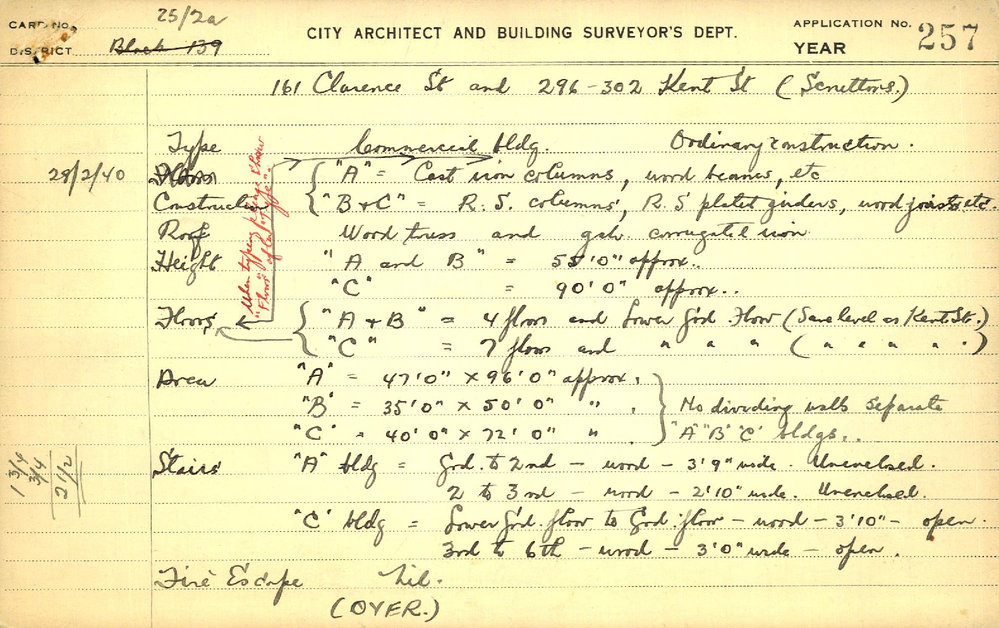 CARD No. 25/2a
CITY ARCHITECT AND BUILDING SURVEYOR'S DEPT.
APPLICATION No. 257
DISTRICT Block 139
YEAR
161 Clarence St and 296-302 Kent St (Scruttons.)
Type Commercial bldg. Ordinary construction.
28/2/40 Floors "A" = Cast iron columns, wood beams, etc
Construction "B & C" = R.S. columns, R.S plated girders, wood joists etc.
Roof Wood truss and galv. corrugated iron
Height "A and B" = 55'0" approx.
"C" = 90'0" approx..
When typing please show
"Floors" after "Type".
Floors "A & B" = 4 floors and Lower G'rd Floor (Same level as Kent St.)
"C" = 7 floors and " " " ( " " " " . )
Area "A" = 47'0" x 96'0" approx.
"B" = 35'0" x 50'0" " . No dividing walls separate
"C" = 40'0" x 72'0" " . "A" "B" "C" bldgs..
1 3/4
3/4
2 1/2
Stairs "A" bldg = Grd. to 2nd - wood - 3'9" wide. Unenclosed.
2 to 3rd - wood - 2'10" wide. Unenclosed.
"C" bldg = Lower G'rd. floor to Grd. floor - wood - 3'10" - open.
3rd to 6th - wood - 3'0" wide - open.
Fire Escape Nil.
(OVER.)